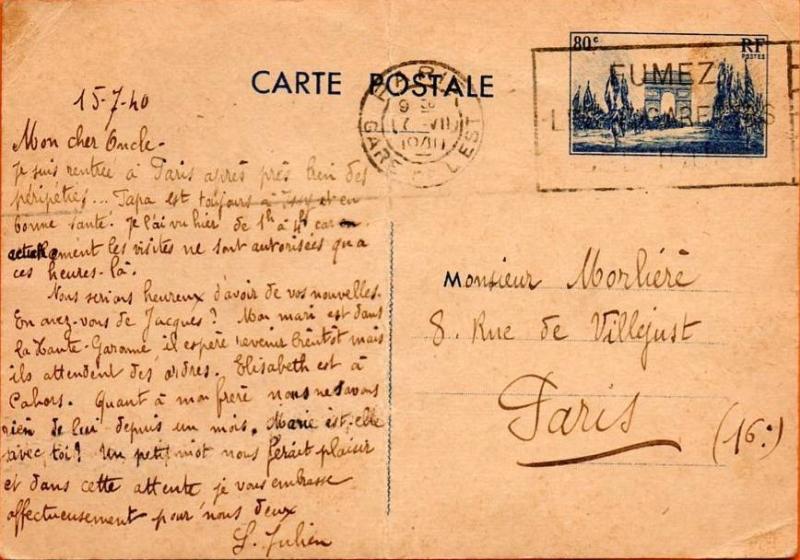 80c
RF
POSTES
FUMEZ
CARTE POSTALE
PARIS
GARE DE L'EST
17 VII
1940
15-7-40
Mon cher Oncle-
Je suis rentrée à Paris après près bien des
péripéties... Papa est toujours à Issy et en
bonne santé. Je l'ai vu hier de 1h à 4h car en
actuellement les visites ne sont autorisées qu'a
ces heures-là.
Nous serions heureux d'avoir de vos nouvelles.
En avez-vous de Jacques? Mon mari est dans
la Haute-Garonne, il espère revenir bientôt mais
ils attendent des ordres. Elisabeth est à
Cahors. Quant à mon frère nous ne savons
rien de lui depuis un mois. Marie est-elle
avec toi? Un petit mot nous ferait plaisir
et dans cette attente je vous embrasse
affectueusement pour nous deux
Julien
Monsieur Morlière
8. Rue de Villejust
Paris
(16e)